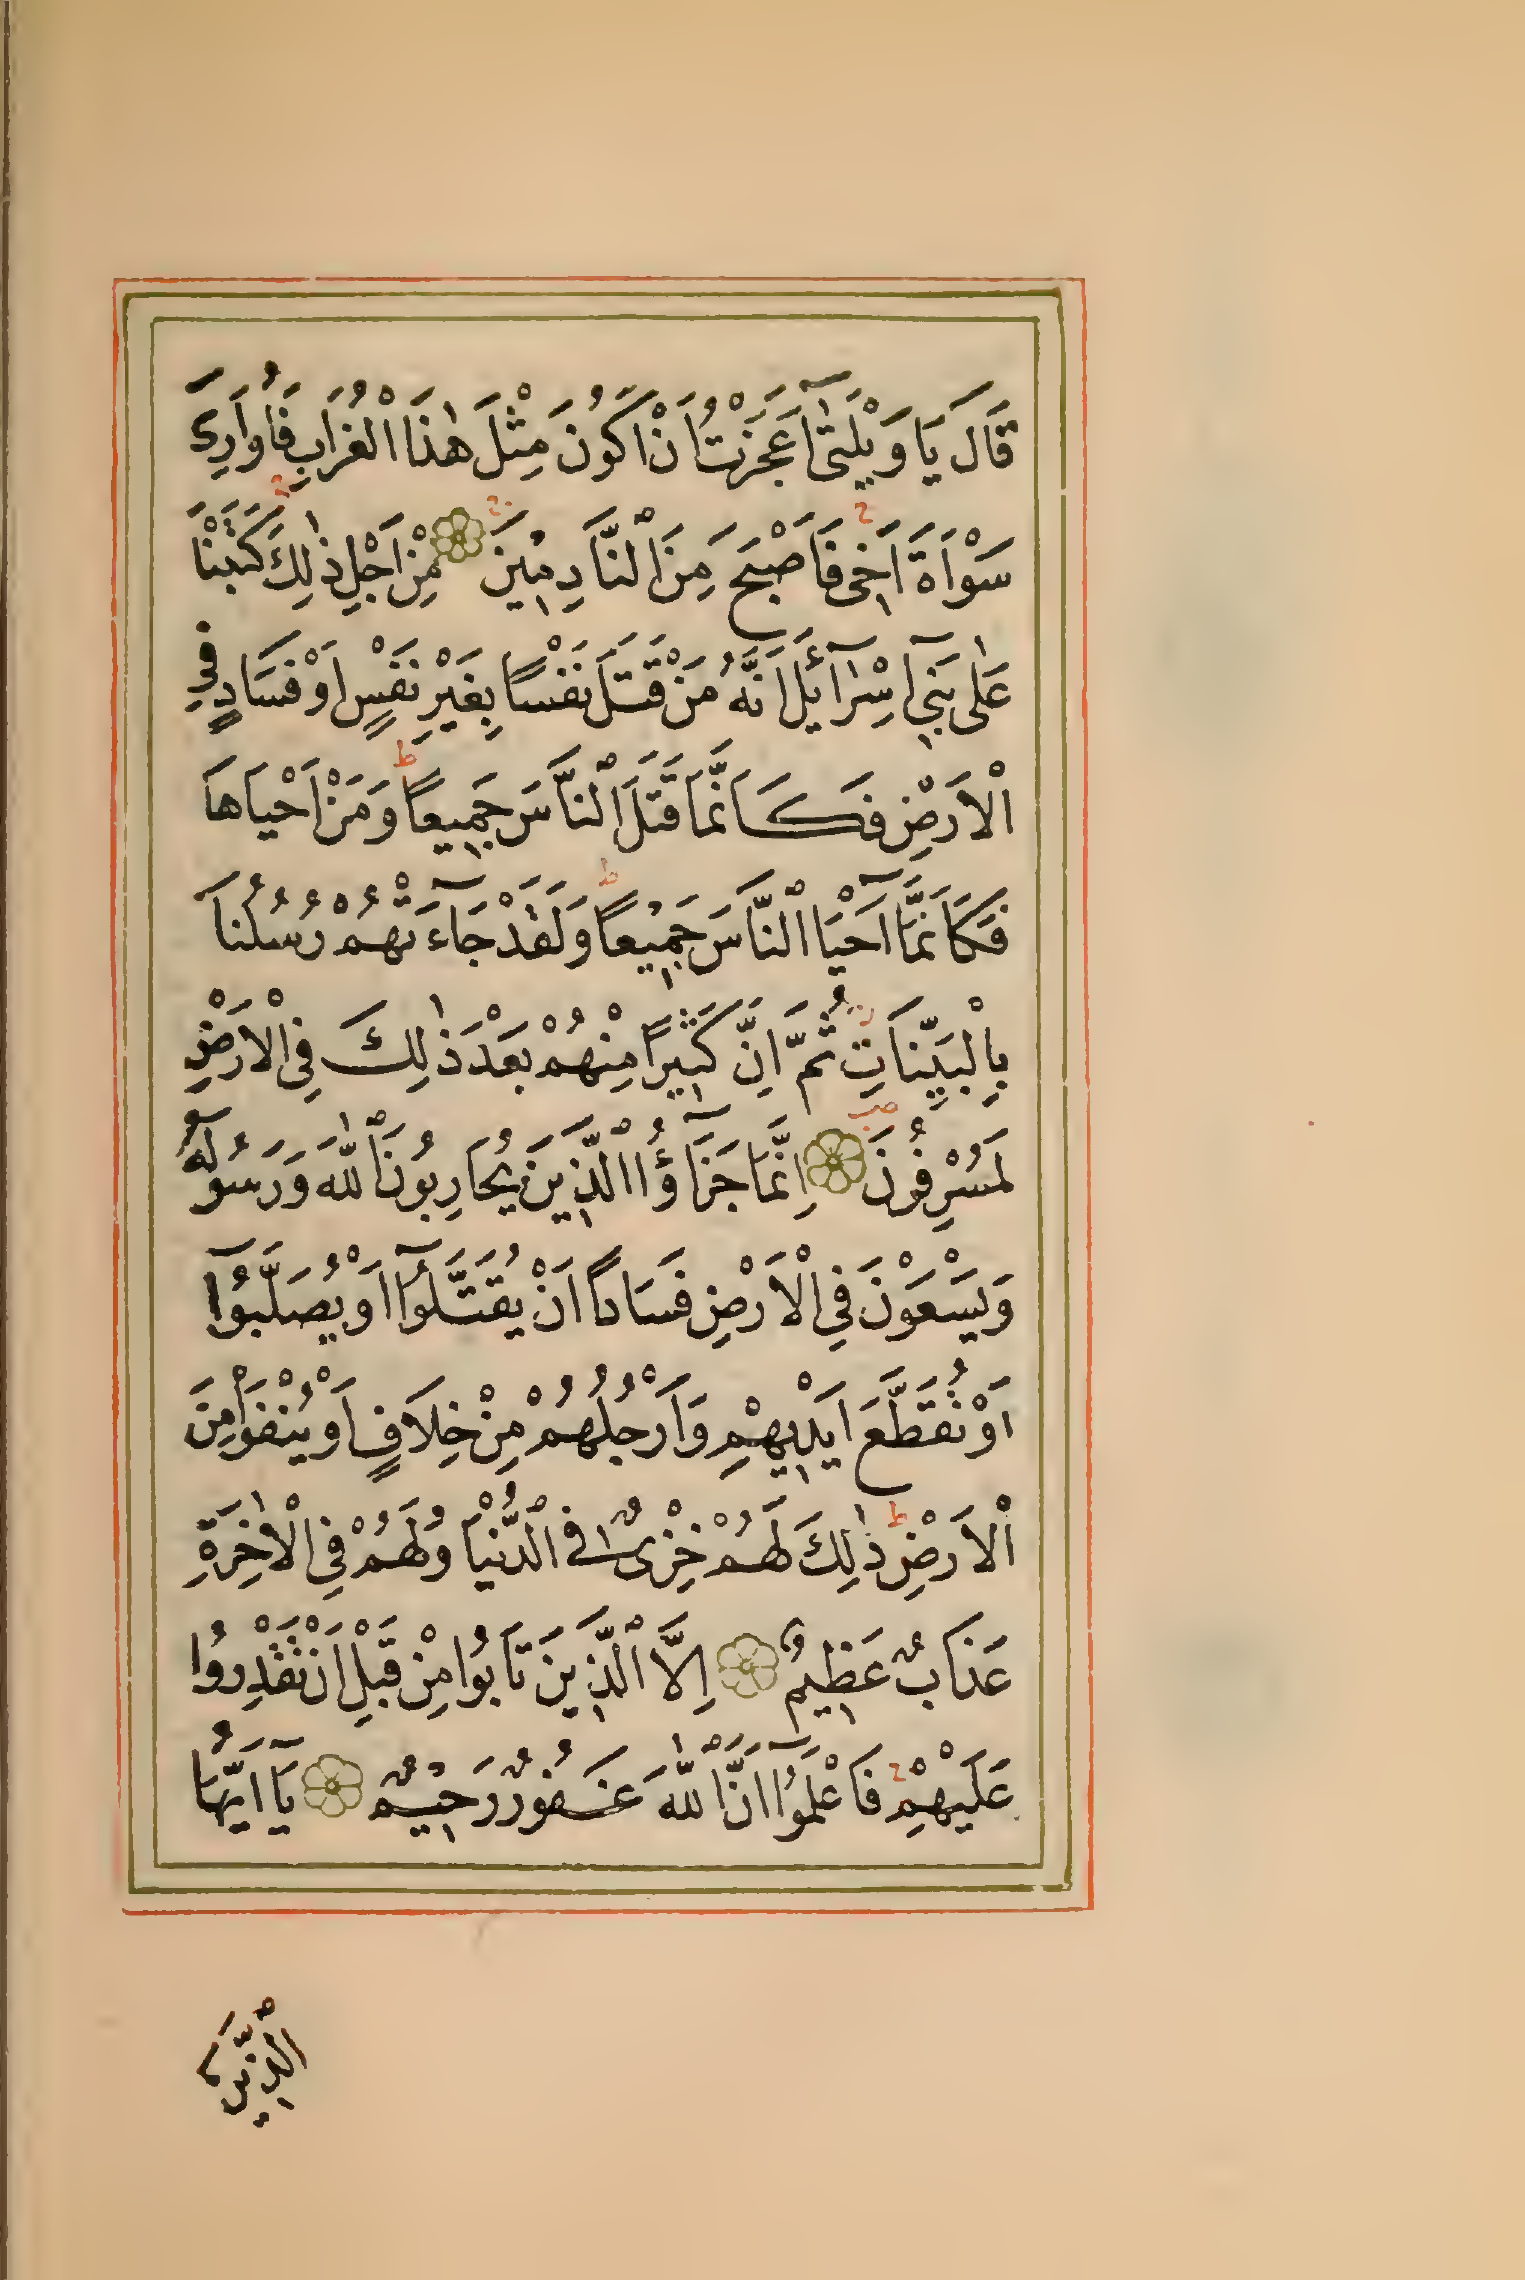 قَالَ يَا وَيْلَتٰٓى اَعَجَزْتُ اَنْ اَكُونَ مِثْلَ هٰذَا الْغُرَابِ فَاُوَارِىَ
سَوْاَةَ اَخٖى فَاَصْبَحَ مِنَ النَّادِمٖينَ مِنْ اَجْلِ ذٰلِكَ كَتَبْنَا
عَلٰى بَنٖٓى اِسْرَٓائٖلَ اَنَّهُ مَنْ قَتَلَ نَفْسًا بِغَيْرِ نَفْسٍ اَوْ فَسَادٍ فِى
الْاَرْضِ فَكَاَنَّمَا قَتَلَ النَّاسَ جَمٖيعًا ط وَمَنْ اَحْيَاهَا
فَكَاَنَّمَٓا اَحْيَا النَّاسَ جَمٖيعًا ط وَلَقَدْ جَٓاءَتْهُمْ رُسُلُنَا
بِالْبَيِّنَاتِ ثُمَّ اِنَّ كَثٖيرًا مِنْهُمْ بَعْدَ ذٰلِكَ فِى الْاَرْضِ
لَمُسْرِفُونَ اِنَّمَا جَزَٓاؤُا الَّذٖينَ يُحَارِبُونَ اللّٰهَ وَرَسُولَهُ
وَيَسْعَوْنَ فِى الْاَرْضِ فَسَادًا اَنْ يُقَتَّلُٓوا اَوْ يُصَلَّبُٓوا
اَوْ تُقَطَّعَ اَيْدٖيهِمْ وَاَرْجُلُهُمْ مِنْ خِلَافٍ اَوْ يُنْفَوْا مِنَ
الْاَرْضِ ط ذٰلِكَ لَهُمْ خِزْىٌ فِى الدُّنْيَا وَلَهُمْ فِى الْاٰخِرَةِ
عَذَابٌ عَظٖيمٌ اِلَّا الَّذٖينَ تَابُوا مِنْ قَبْلِ اَنْ تَقْدِرُوا
عَلَيْهِمْ فَاعْلَمُٓوا اَنَّ اللّٰهَ غَفُورٌ رَحٖيمٌ يَٓا اَيُّهَا
الَّذٖينَ